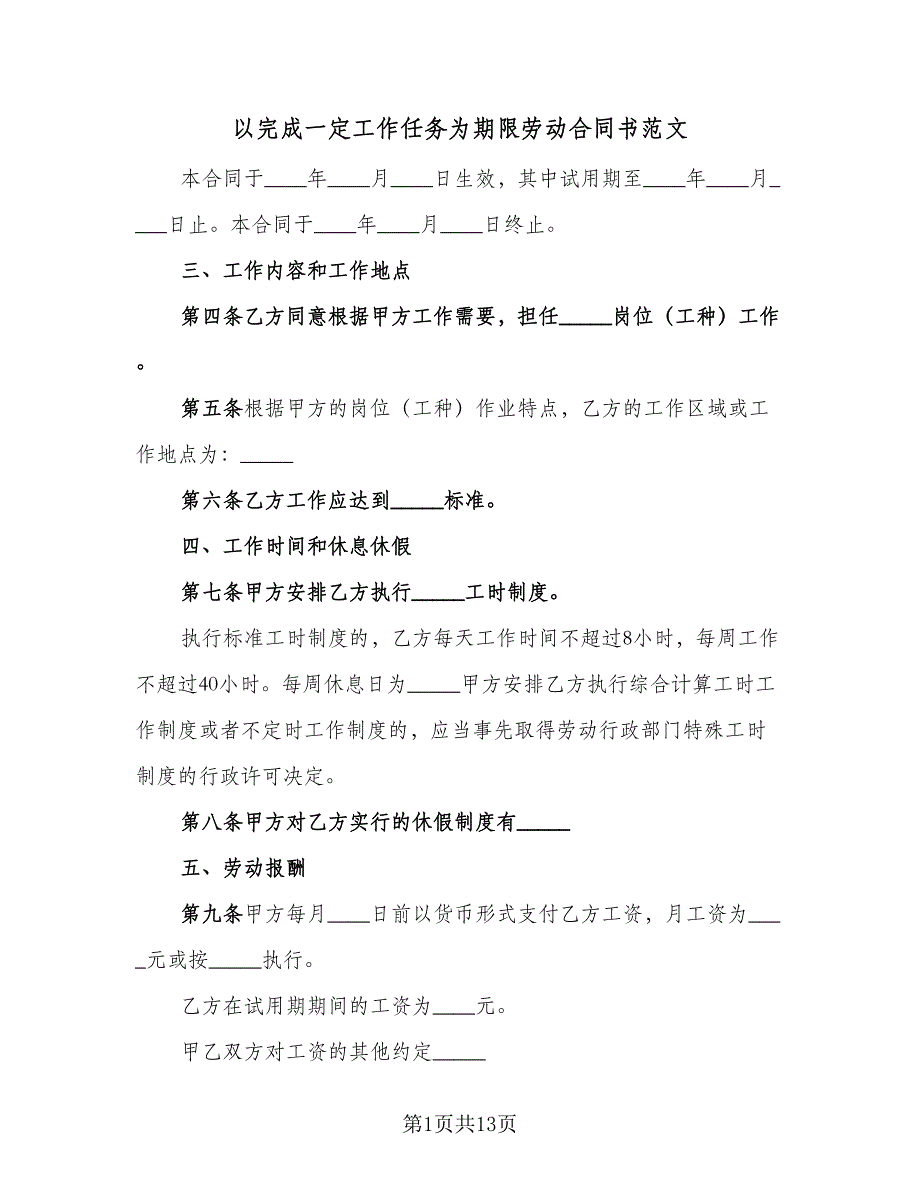 以完成一定工作任务为期限劳动合同书范文
本合同于____年____月____日生效，其中试用期至____年____月_
___日止。本合同于____年____月____日终止。
三、工作内容和工作地点
第四条乙方同意根据甲方工作需要，担任_____岗位（工种）工作
。
第五条根据甲方的岗位（工种）作业特点，乙方的工作区域或工
作地点为：_____
第六条乙方工作应达到_____标准。
四、工作时间和休息休假
第七条甲方安排乙方执行_____工时制度。
执行标准工时制度的，乙方每天工作时间不超过8小时，每周工作
不超过40小时。每周休息日为_____甲方安排乙方执行综合计算工时工
作制度或者不定时工作制度的，应当事先取得劳动行政部门特殊工时
制度的行政许可决定。
第八条甲方对乙方实行的休假制度有_____
五、劳动报酬
第九条甲方每月____日前以货币形式支付乙方工资，月工资为___
_元或按_____执行。
乙方在试用期期间的工资为____元。
甲乙双方对工资的其他约定_____
第1页共13页